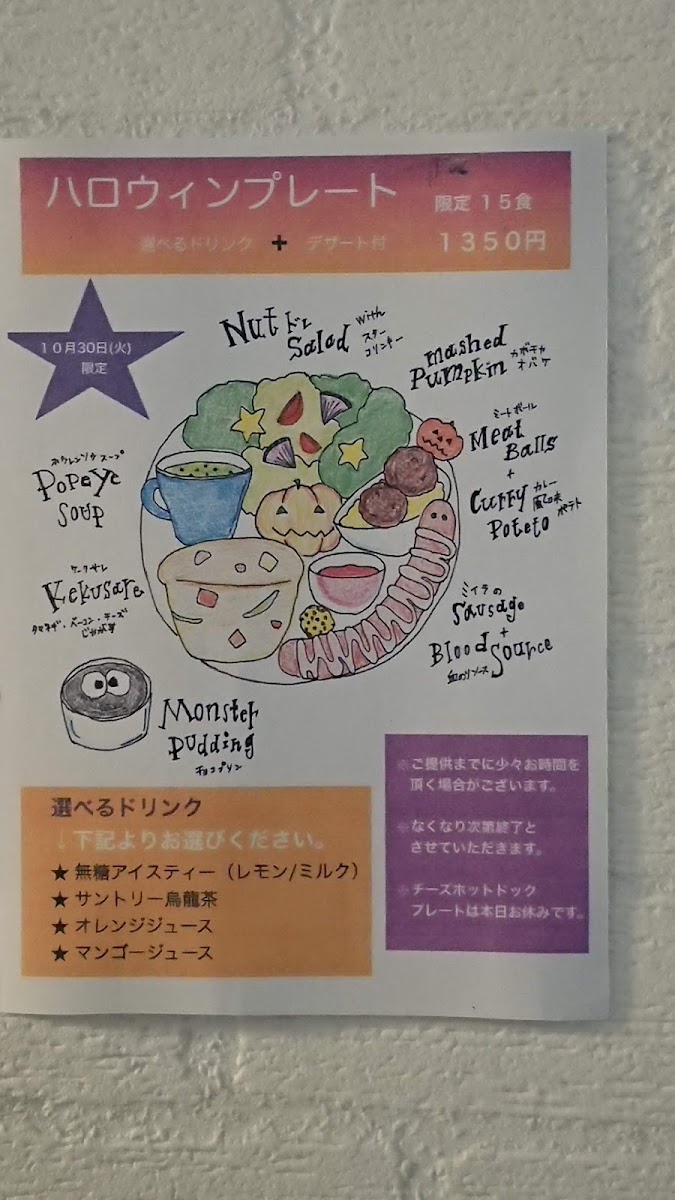 ハロウィンプレート
限定 15食
選べるドリンク + デザート付
1350円
10月30日(火)
限定
Nut ドレ
Salad
with
スター
コリンキー
mashed
Pumpkin
カボチャ
オバケ
ミートボール
Meat
Balls
+
Curry
Poteto
カレー
風味
ポテト
ホウレンソウスープ
Popeye
Soup
ケークサレ
Kekusare
タマネギ・ベーコン・チーズ
じゃが芋
ミイラの
Sausage
+
Blood
Source
血のソース
Monster
Pudding
チョコプリン
選べるドリンク
↓下記よりお選びください。
★ 無糖アイスティー（レモン/ミルク）
★ サントリー烏龍茶
★ オレンジジュース
★ マンゴージュース
※ご提供までに少々お時間を
頂く場合がございます。
※なくなり次第終了と
させていただきます。
※チーズホットドック
プレートは本日お休みです。